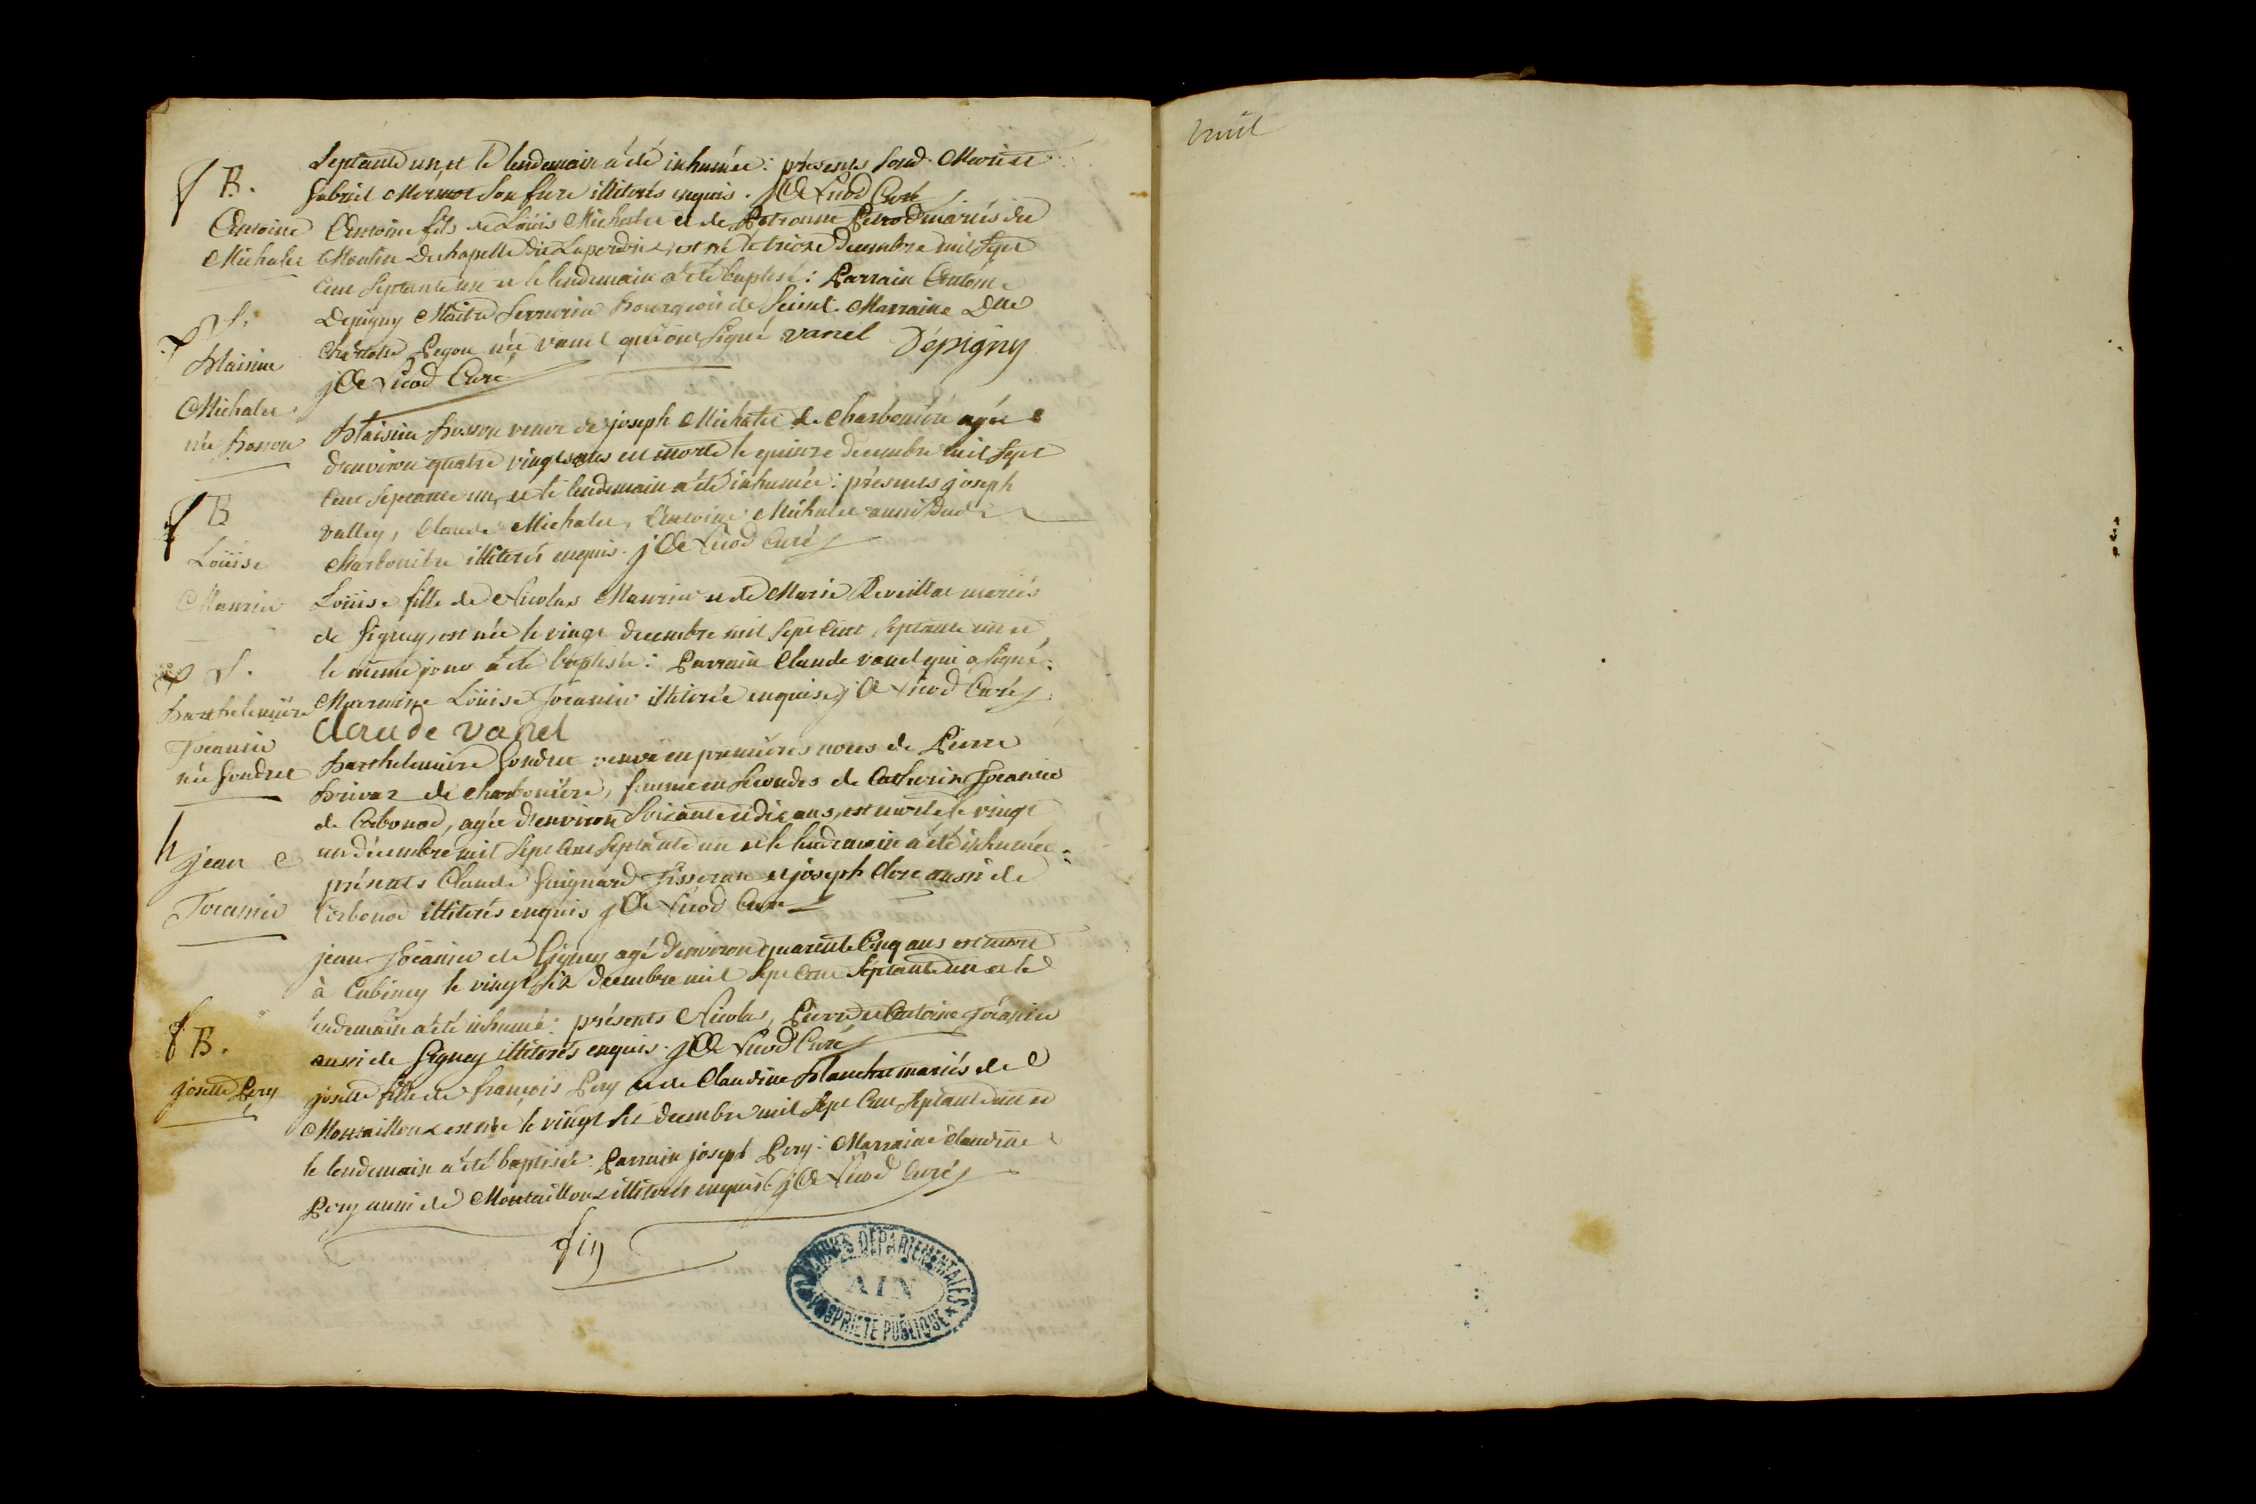 Septante un, et le lendemain a été inhumée: présents
Gabriel Mermet son frere illiterés enquis. Curé
B.
Antoine
Michalet
Antoine fils de Loüis Michalet et de Petronne mariés du
Moulin de chapelle dit est né le treize decembre mil sept
Cent septante un et le lendemain a été baptisé: Parrain Antoine
Depigny Maitre Serrurier Bourgeois de Seissel. Marraine Dlle
née vanel qui ont signé vanel Dépigny
Curé
S.
Blaisine
Michalet
née Bosson
Blaisine Bosson veuve de joseph Michalet de Charboniére agée
d'environ quatre vingt ans est morte le quinze decembre mil sept
Cent septante un, et le lendemain a été inhumée: présents joseph
valley, Claude Michalet, Antoine Michalet aussi dud.
Charboniére illiterés enquis. Curé
B
Loüise
Maurier
Loüise fille de Nicolas Maurier et de Marie mariés
de Signey, est née le vingt decembre mil sept Cent septante un et
le méme jour a été baptisée: Parrain Claude vanel qui a signé:
Marraine Loüise Joeanin illiterée enquise Curé
Claude vanel
S.
Barthelemiére
Joeanin
née Gondret
Barthelemiére Gondret veuve en premiéres noces de Pierre
de Charboniére, femme en secondes de Catherin Joeanin
de Corbonod, agée d'environ soixante et dix ans, est morte le vingt
un décembre mil sept Cent septante un et le lendemain a été inhumée:
présents Claude Guignard Tisseran et joseph aussi de
Corbonod illiterés enquis Curé
jean
Joeanin
jean Joeanin de Signey agé d'environ quarente cinq ans est mort
à le vingt six decembre mil sept Cent septante un et le
lendemain a été inhumé: présents Nicolas, Pierre et Antoine Joeanin
aussi de Signey illiterés enquis. Curé
B.
josette Pery
josette fille de françois Pery et de Claudine mariés de
est née le vingt six decembre mil sept Cent septante un et
le lendemain a été baptisée: Parrain joseph Pery: Marraine Claudine
Pery aussi de illiterés enquis. Curé
fin
ARCHIVES DEPARTEMENTALES
AIN
PROPRIETE PUBLIQUE